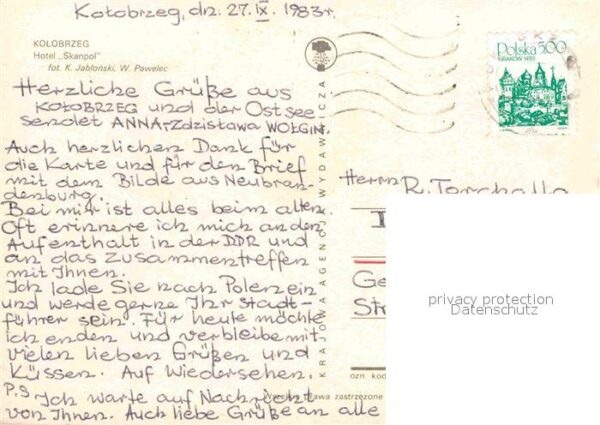 Kołobrzeg, dn. 27.IX.1983r.
KOŁOBRZEG
Hotel „Skanpol”
fot. K. Jabłoński, W. Pawelec
Herzliche Grüße aus
KOŁOBRZEG und der Ostsee
sendet ANNA-Zdzisława WOŁGIN.
Auch herzlichen Dank für
die Karte und für den Brief
mit dem Bilde aus Neubran-
denburg.
Bei mir ist alles beim alten.
Oft erinnere ich mich an den
Aufenthalt in der DDR und
an das Zusammentreffen
mit Ihnen.
Ich lade Sie nach Polen ein
und werde gerne Ihr Stadt-
führer sein. Für heute möchte
ich enden und verbleibe mit
vielen lieben Grüßen und
Küssen. Auf Wiedersehen.
P.S Ich warte auf Nachricht
von Ihnen. Auch liebe Grüße an alle
KRAJOWA AGENCJA WYDAWNICZA
Polska 500
KRAKÓW 1493
Herrn R. Torchalla
Ge
Str
privacy protection
Datenschutz
ozn kod
Wszelkie prawa zastrzeżone